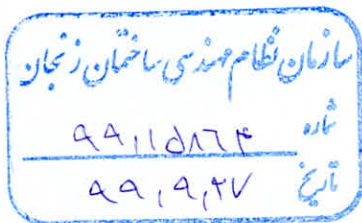 سازمان نظام مهندسی ساختمان زنجان
شماره ۹۹,۱۱۵۸۶۴
تاریخ ۹۹,۹,۲۷